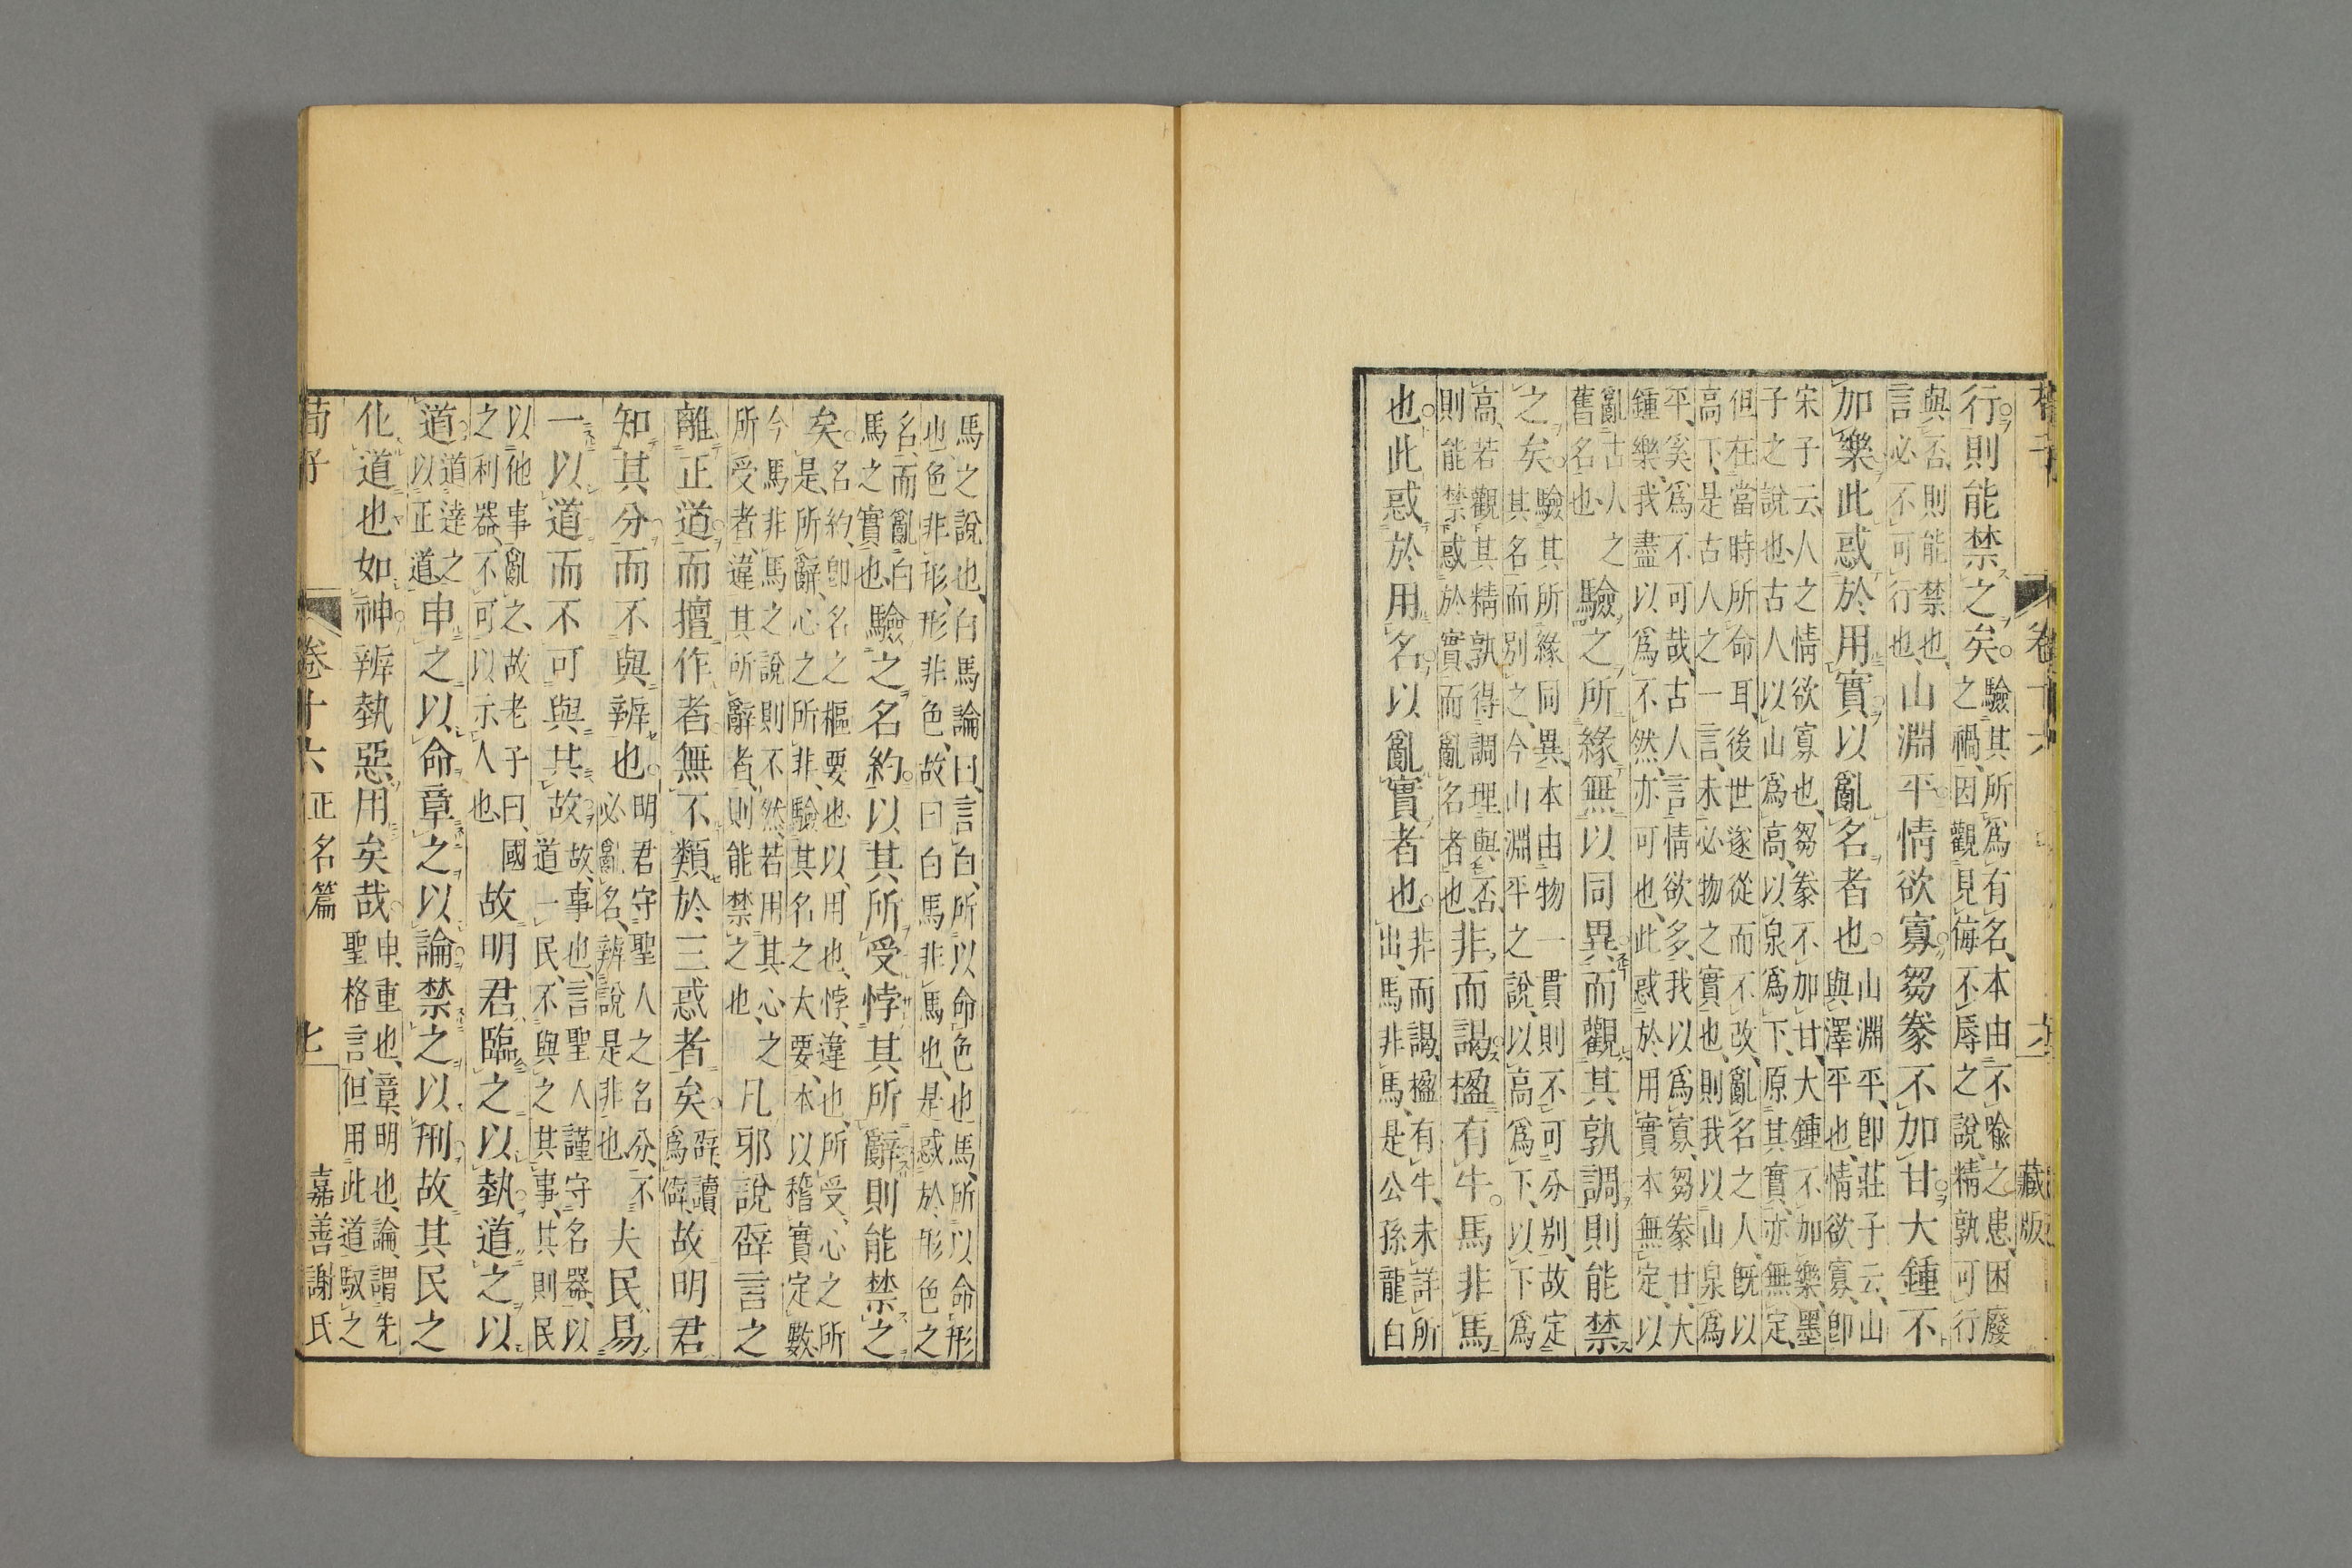 荀子
卷十六
六
藏版
行則能禁之矣驗其所爲有名本由不喻之患困廢
之禍因觀見侮不辱之說精孰可行
與否則能禁也
言必不可行也山淵平情欲寡芻豢不加甘大鍾不
加樂此惑於用實以亂名者也山淵平卽莊子云山
與澤平也情欲寡卽
宋子云人之情欲寡也芻豢不加甘大鍾不加樂墨
子之說也古人以山爲高以泉爲下原其實亦無定
但在當時所命耳後世遂從而不改亂名之人旣以
高下是古人之一言未必物之實也則我以山泉爲
平奚爲不可哉古人言情欲多我以爲寡芻豢甘大
鍾樂我盡以爲不然亦可也此惑於用實本無定以
亂古人之
舊名也驗之所緣無以同異而觀其孰調則能禁
之矣驗其所緣同異本由物一貫則不可分別故定
其名而別之今山淵平之說以高爲下以下爲
高若觀其精孰得調理與否
則能禁惑於實而亂名者也非而謁楹有牛馬非馬
也此惑於用名以亂實者也非而謁楹有牛未詳所
出馬非馬是公孫龍白
馬之說也白馬論曰言白所以命色也馬所以命形
也色非形形非色故曰白馬非馬也是惑於形色之
名而亂白
馬之實也驗之名約以其所受悖其所辭則能禁之
矣名約卽名之樞要也以用也悖違也所受心之所
是所辭心之所非驗其名之大要本以稽實定數
今馬非馬之說則不然若用其心之
所受者違其所辭者則能禁之也凡邪說辟言之
離正道而擅作者無不類於三惑者矣辟讀
爲僻故明君
知其分而不與辨也明君守聖人之名分不
必亂名辨說是非也夫民易
一以道而不可與其故故事也言聖人謹守名器以
道一民不與之其事其則民
以他事亂之故老子曰國
之利器不可以示人也故明君臨之以埶道之以
道道達之
以正道申之以命章之以論禁之以刑故其民之
化道也如神辨埶惡用矣哉申重也章明也論謂先
聖格言但用此道馭之
荀子
卷十六正名篇
七
嘉善謝氏